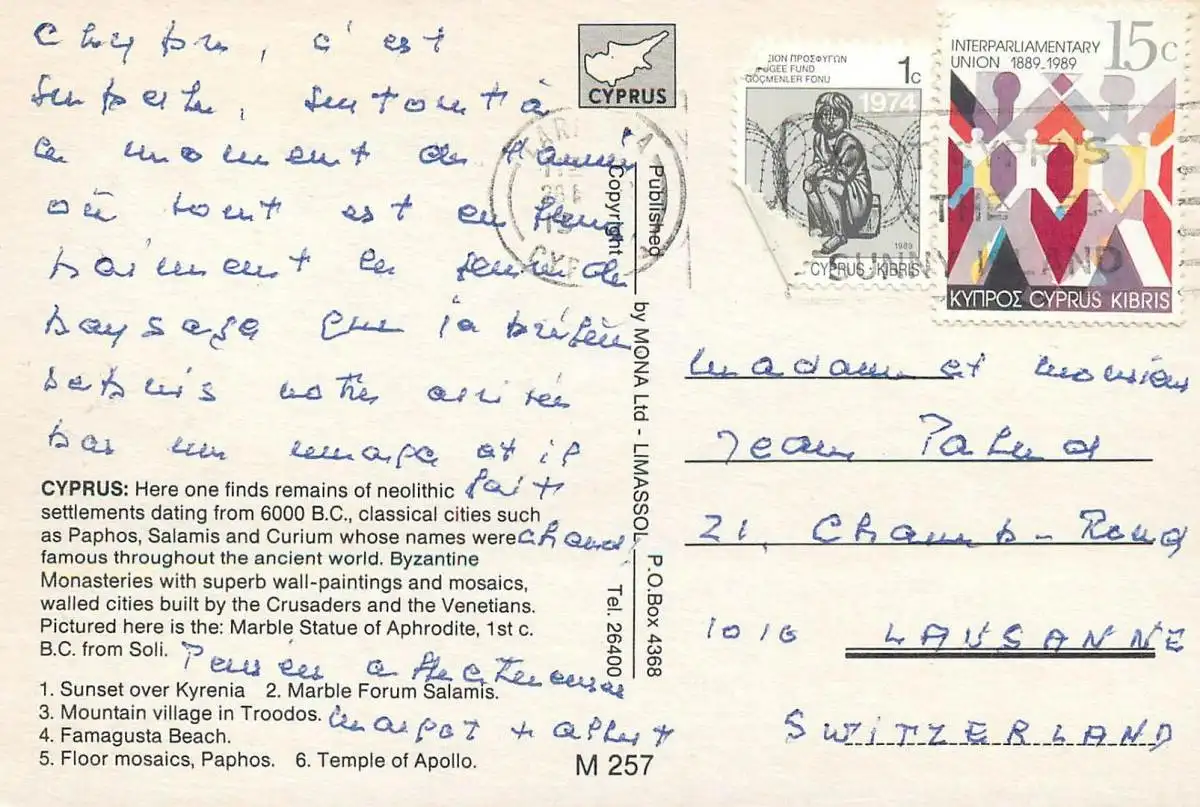 Chypre, c'est
superbe, surtout à
ce moment de l'année
où tout est en fleurs,
vraiment
paysage que
depuis notre arrivée
pas un nuage et il
fait
chaud.
Pensées affectueuses
Margot + Albert
CYPRUS
CYPRUS: Here one finds remains of neolithic
settlements dating from 6000 B.C., classical cities such
as Paphos, Salamis and Curium whose names were
famous throughout the ancient world. Byzantine
Monasteries with superb wall-paintings and mosaics,
walled cities built by the Crusaders and the Venetians.
Pictured here is the: Marble Statue of Aphrodite, 1st c.
B.C. from Soli.
1. Sunset over Kyrenia 2. Marble Forum Salamis.
3. Mountain village in Troodos.
4. Famagusta Beach.
5. Floor mosaics, Paphos. 6. Temple of Apollo.
M 257
Published by MONA Ltd - LIMASSOL P.O.Box 4368
Copyright Tel. 26400
ΠΡΟΣΦΥΓΩΝ
FUND
GÖÇMENLER FONU
1c
1974
1989
CYPRUS - KIBRIS
INTERPARLIAMENTARY
UNION 1889-1989
15c
ΚΥΠΡΟΣ CYPRUS KIBRIS
CYPRUS
THE
SUNNY ISLAND
Madame et Monsieur
Jean
21, Champ-Rond
1010 LAUSANNE
SWITZERLAND